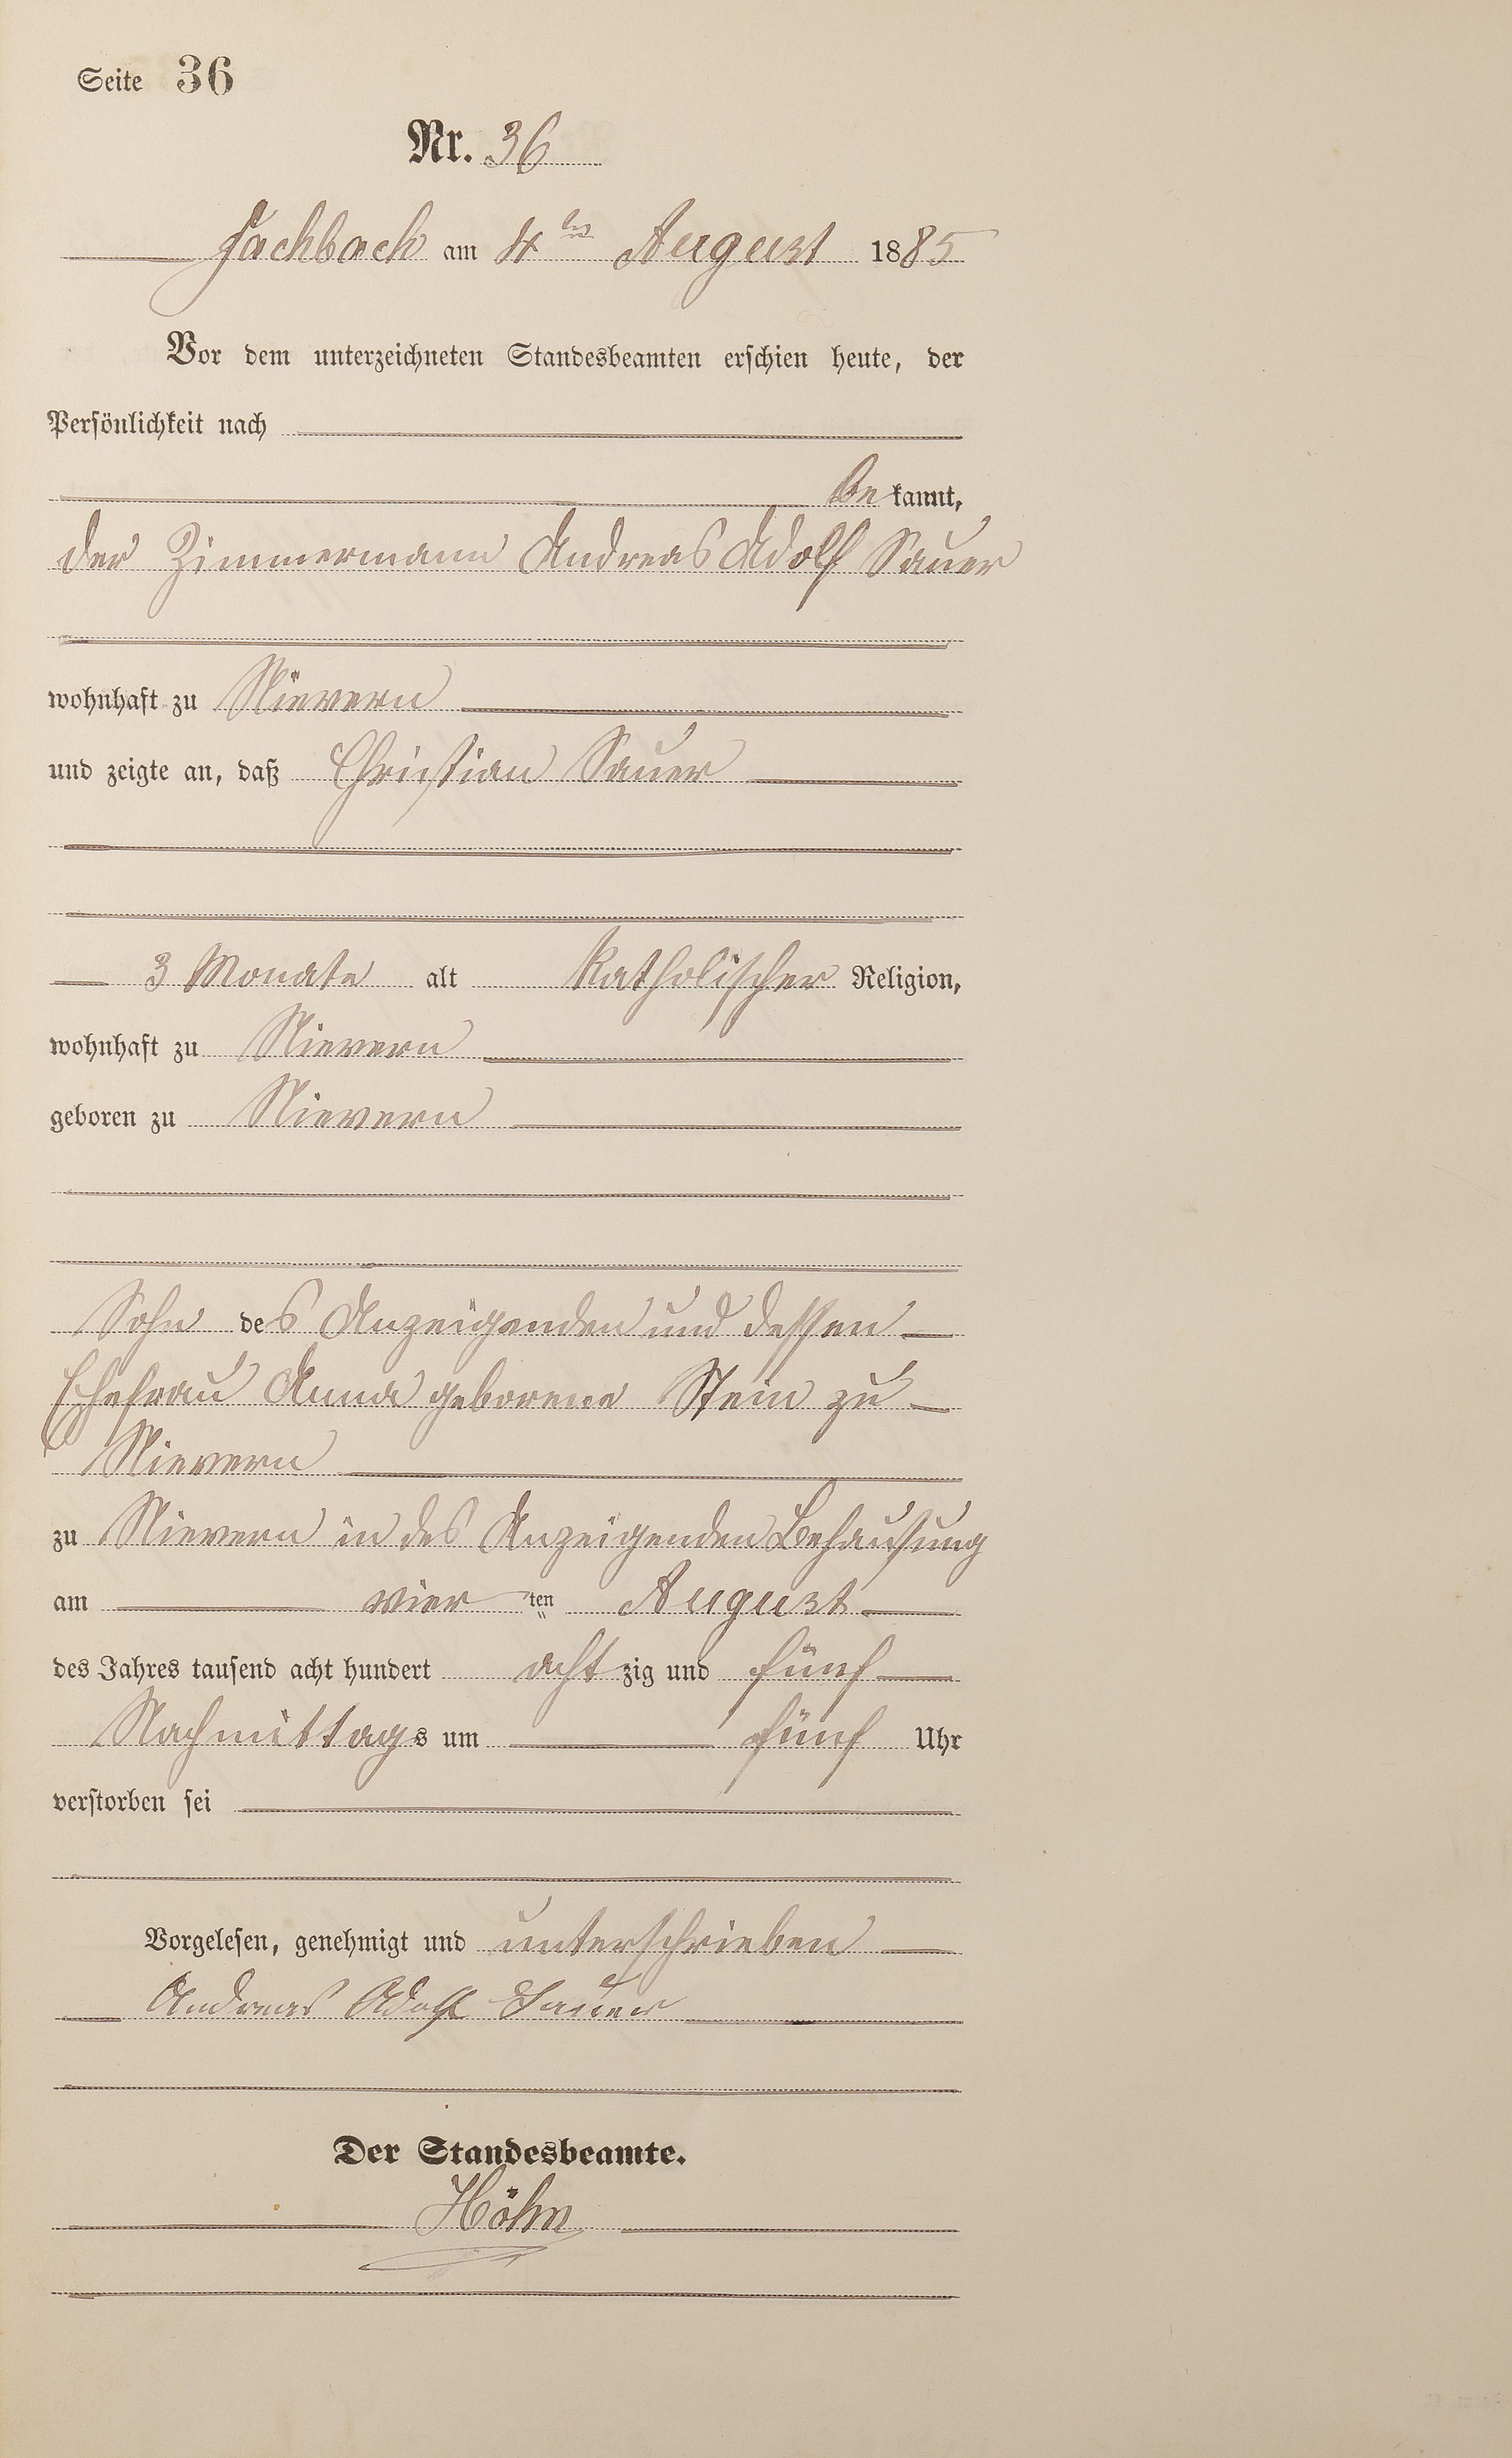 Seite 36
Nr. 36
Fachbach am 4ten August 1885
Vor dem unterzeichneten Standesbeamten erschien heute, der
Persönlichkeit nach
bekannt,
der Zimmermann Andreas Adolf Sauer
wohnhaft zu Nievern
und zeigte an, daß Christian Sauer
3 Monate alt katholischer Religion,
wohnhaft zu Nievern
geboren zu Nievern
Sohn des Anzeigenden und dessen
Ehefrau Anna geborene Stein zu
Nievern
zu Nievern in des Anzeigenden Behausung
am vierten August
des Jahres tausend acht hundert achtzig und fünf
Nachmittags um fünf Uhr
verstorben sei
Vorgelesen, genehmigt und unterschrieben
Andreas Adolf Sauer
Der Standesbeamte.
Höhn